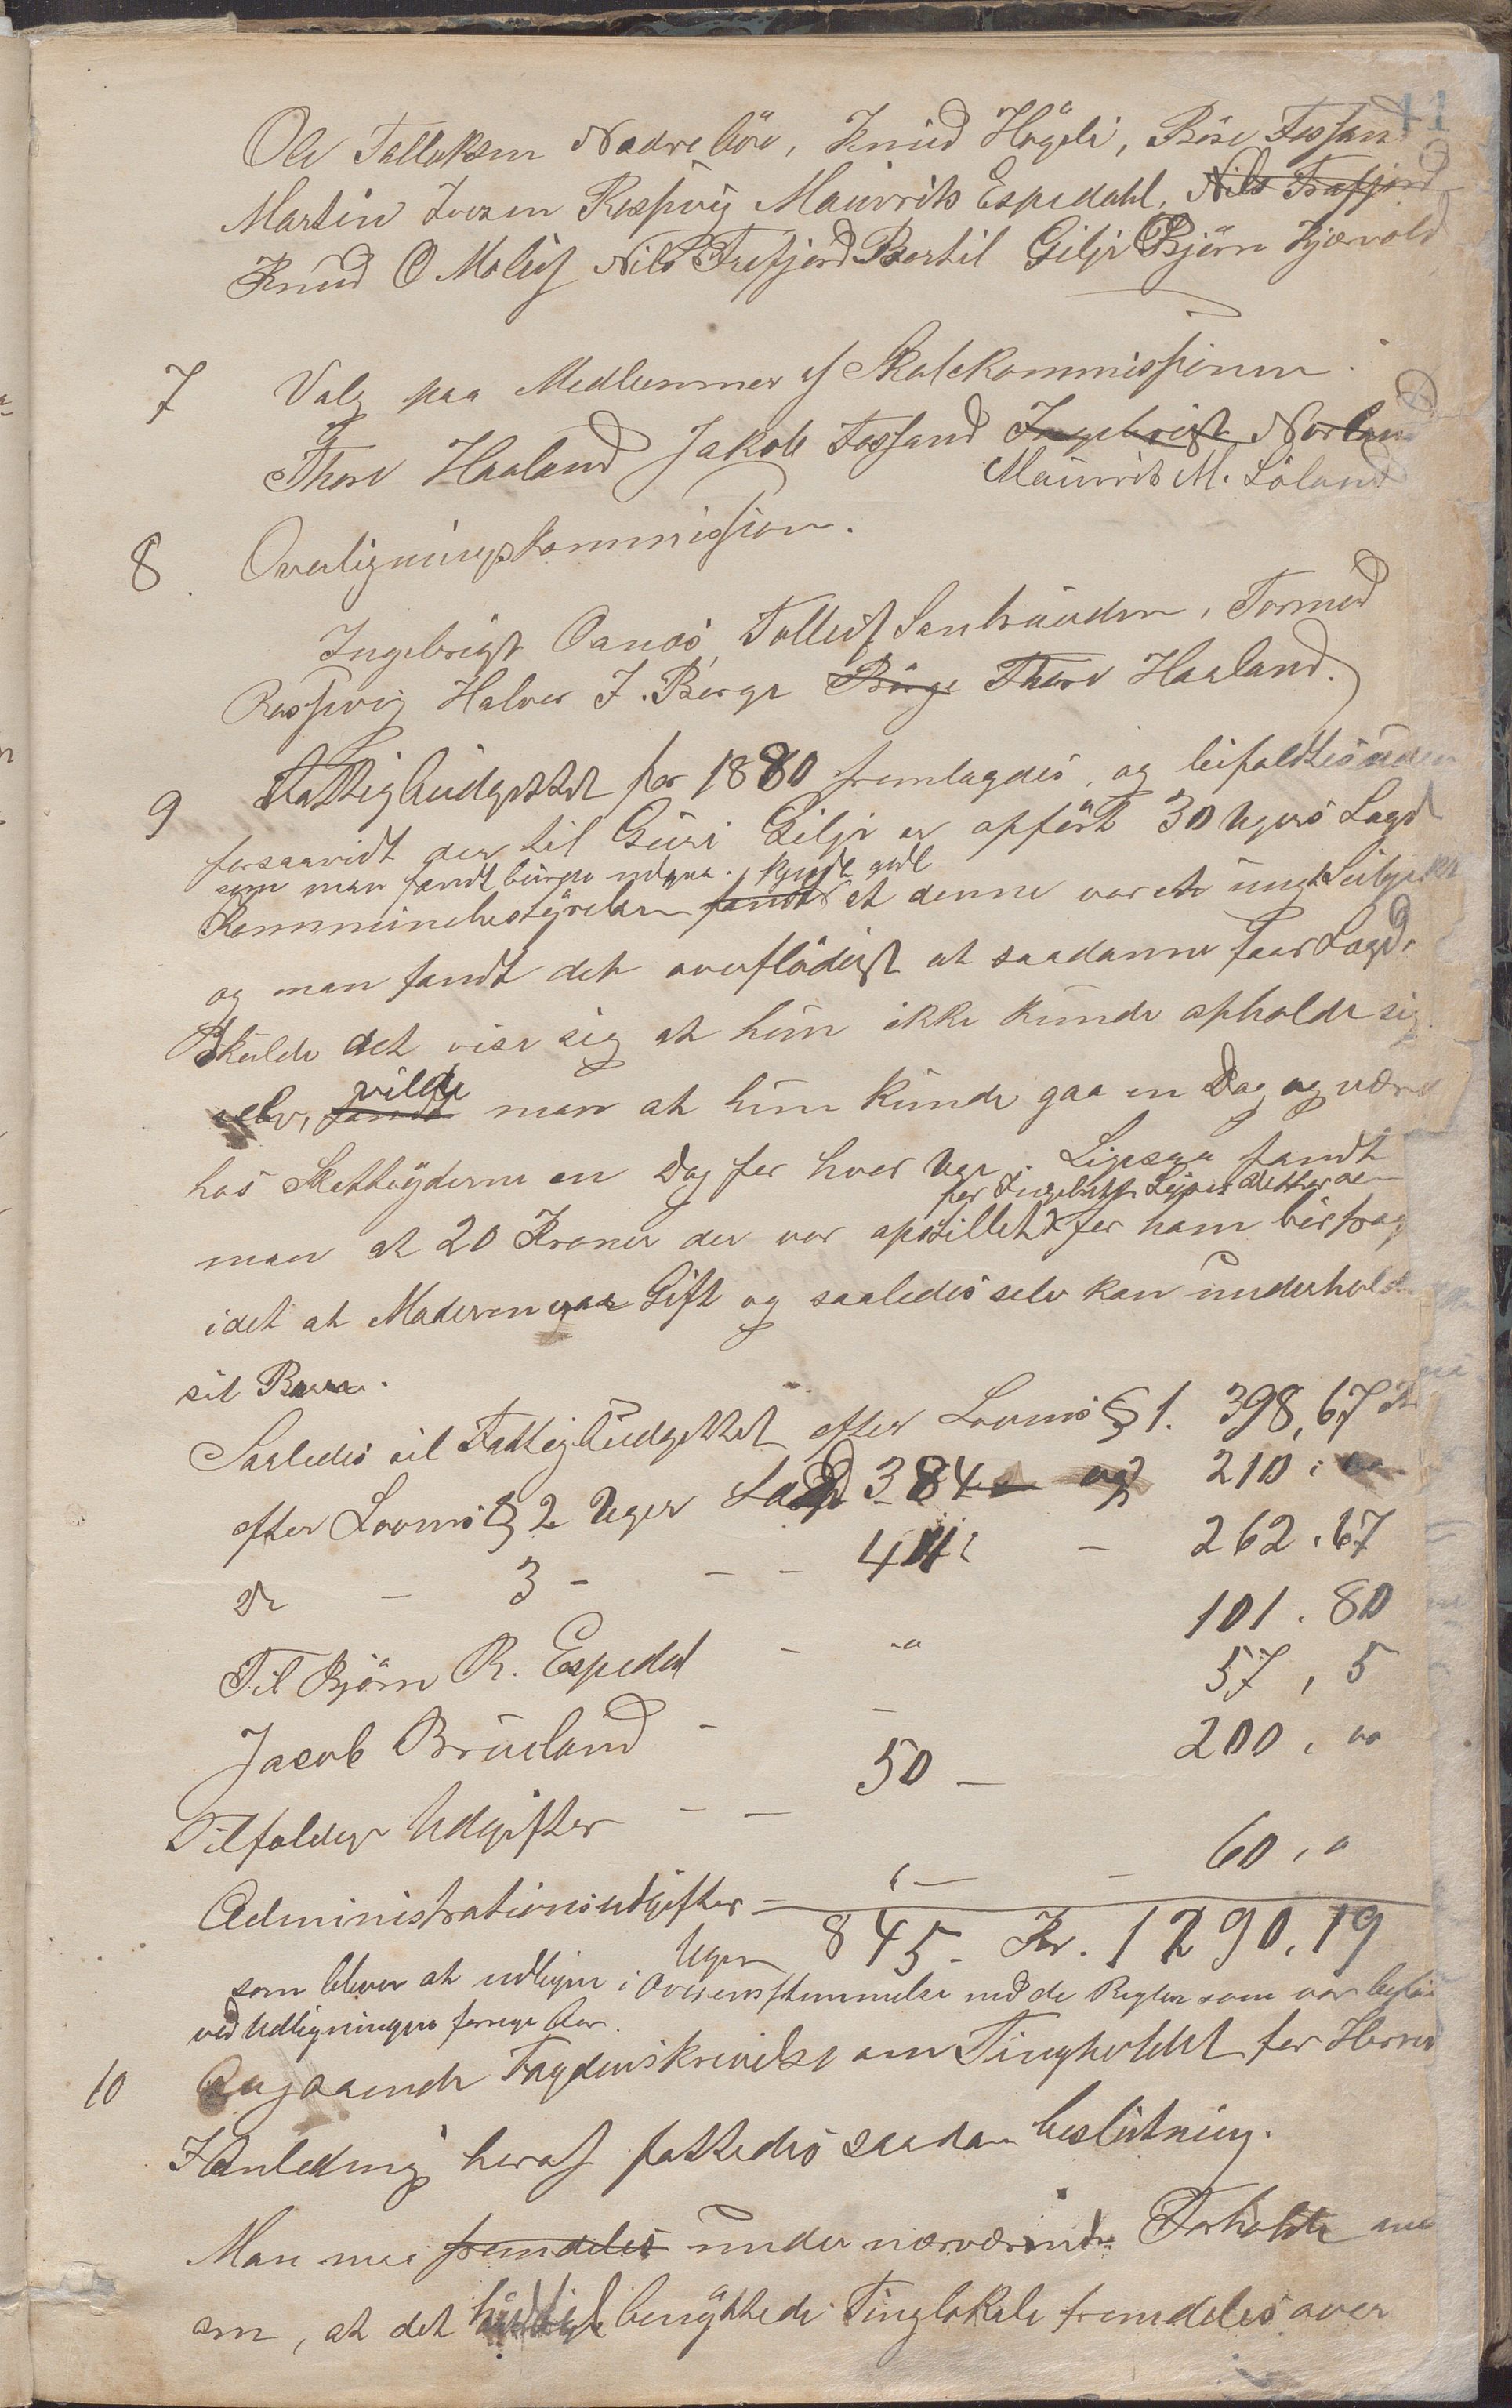 41
Ole Tolleksen Nedrebö, Knud Högeli, Böie Fossan
Martin Iversen Rossevig Mauritz Espedahl, Nils Frafjord
Knud O Molaug Nils Frefjord Bertil Gilje Björn Kjærvold
7 Valg paa Medlemmer af Skolekommissionen.
Thore Haaland Jakob Fossand Ingebrigt Norland
Mauritz M. Löland
8 Overligningskommission.
Ingebrigt Oanæs, Tollef Sembuuden, Tormod
Rossevig Halvor J. Berge Börge Thore Haaland.
9 Fattigbudgettet for 1880 fremlagdes, og bifaldtes uden
forsaavidt der til Guri Gilje er opfört 30 Ugers Lægd
som man fandt burde udgaa. kjendt godt
Kommunebestyrelsen fandt at denne var et ungt
og man fandt det overflödigt at saadanne faar Lægd,
Skulde det vise sig at hun ikke kunde opholde sig
selv, fandt vilde man at hun kunde gaa en Dag og være
hos Skatteyderne en Dag for hver Uge. Ligesaa fandt
for Ingebrigt
man at 20 Kroner der var opstillet for ham
idet at Moderen var Gift og saaledes selv kan underholde
sit Barn.
Saaledes til Fattigbudgettet efter Lovens § 1. 398,67
efter Lovens § 2 Uger Lægd 384 og 210
Do - 3 - - - 411 - 262.67
Til Björn R. Espedal - " 101.80
Jacob Brueland - - 57,5
Tilfeldige Udgifter - - 50 - 200,00
Administrationsudgifter - - 60,0
Uger 845 - Kr. 1290,19
som bliver at udligne i Overensstemmelse med de Regler som var
ved Udligningen forrige Aar.
10 Angaaende Fogdens skrivelse om Tingholdet for Herred
I Anledning heraf fattedes saadan beslutning.
Man maa fremdeles under nærværende Forholde
om, at det hidtil benyttede Tinglokale fremdeles over